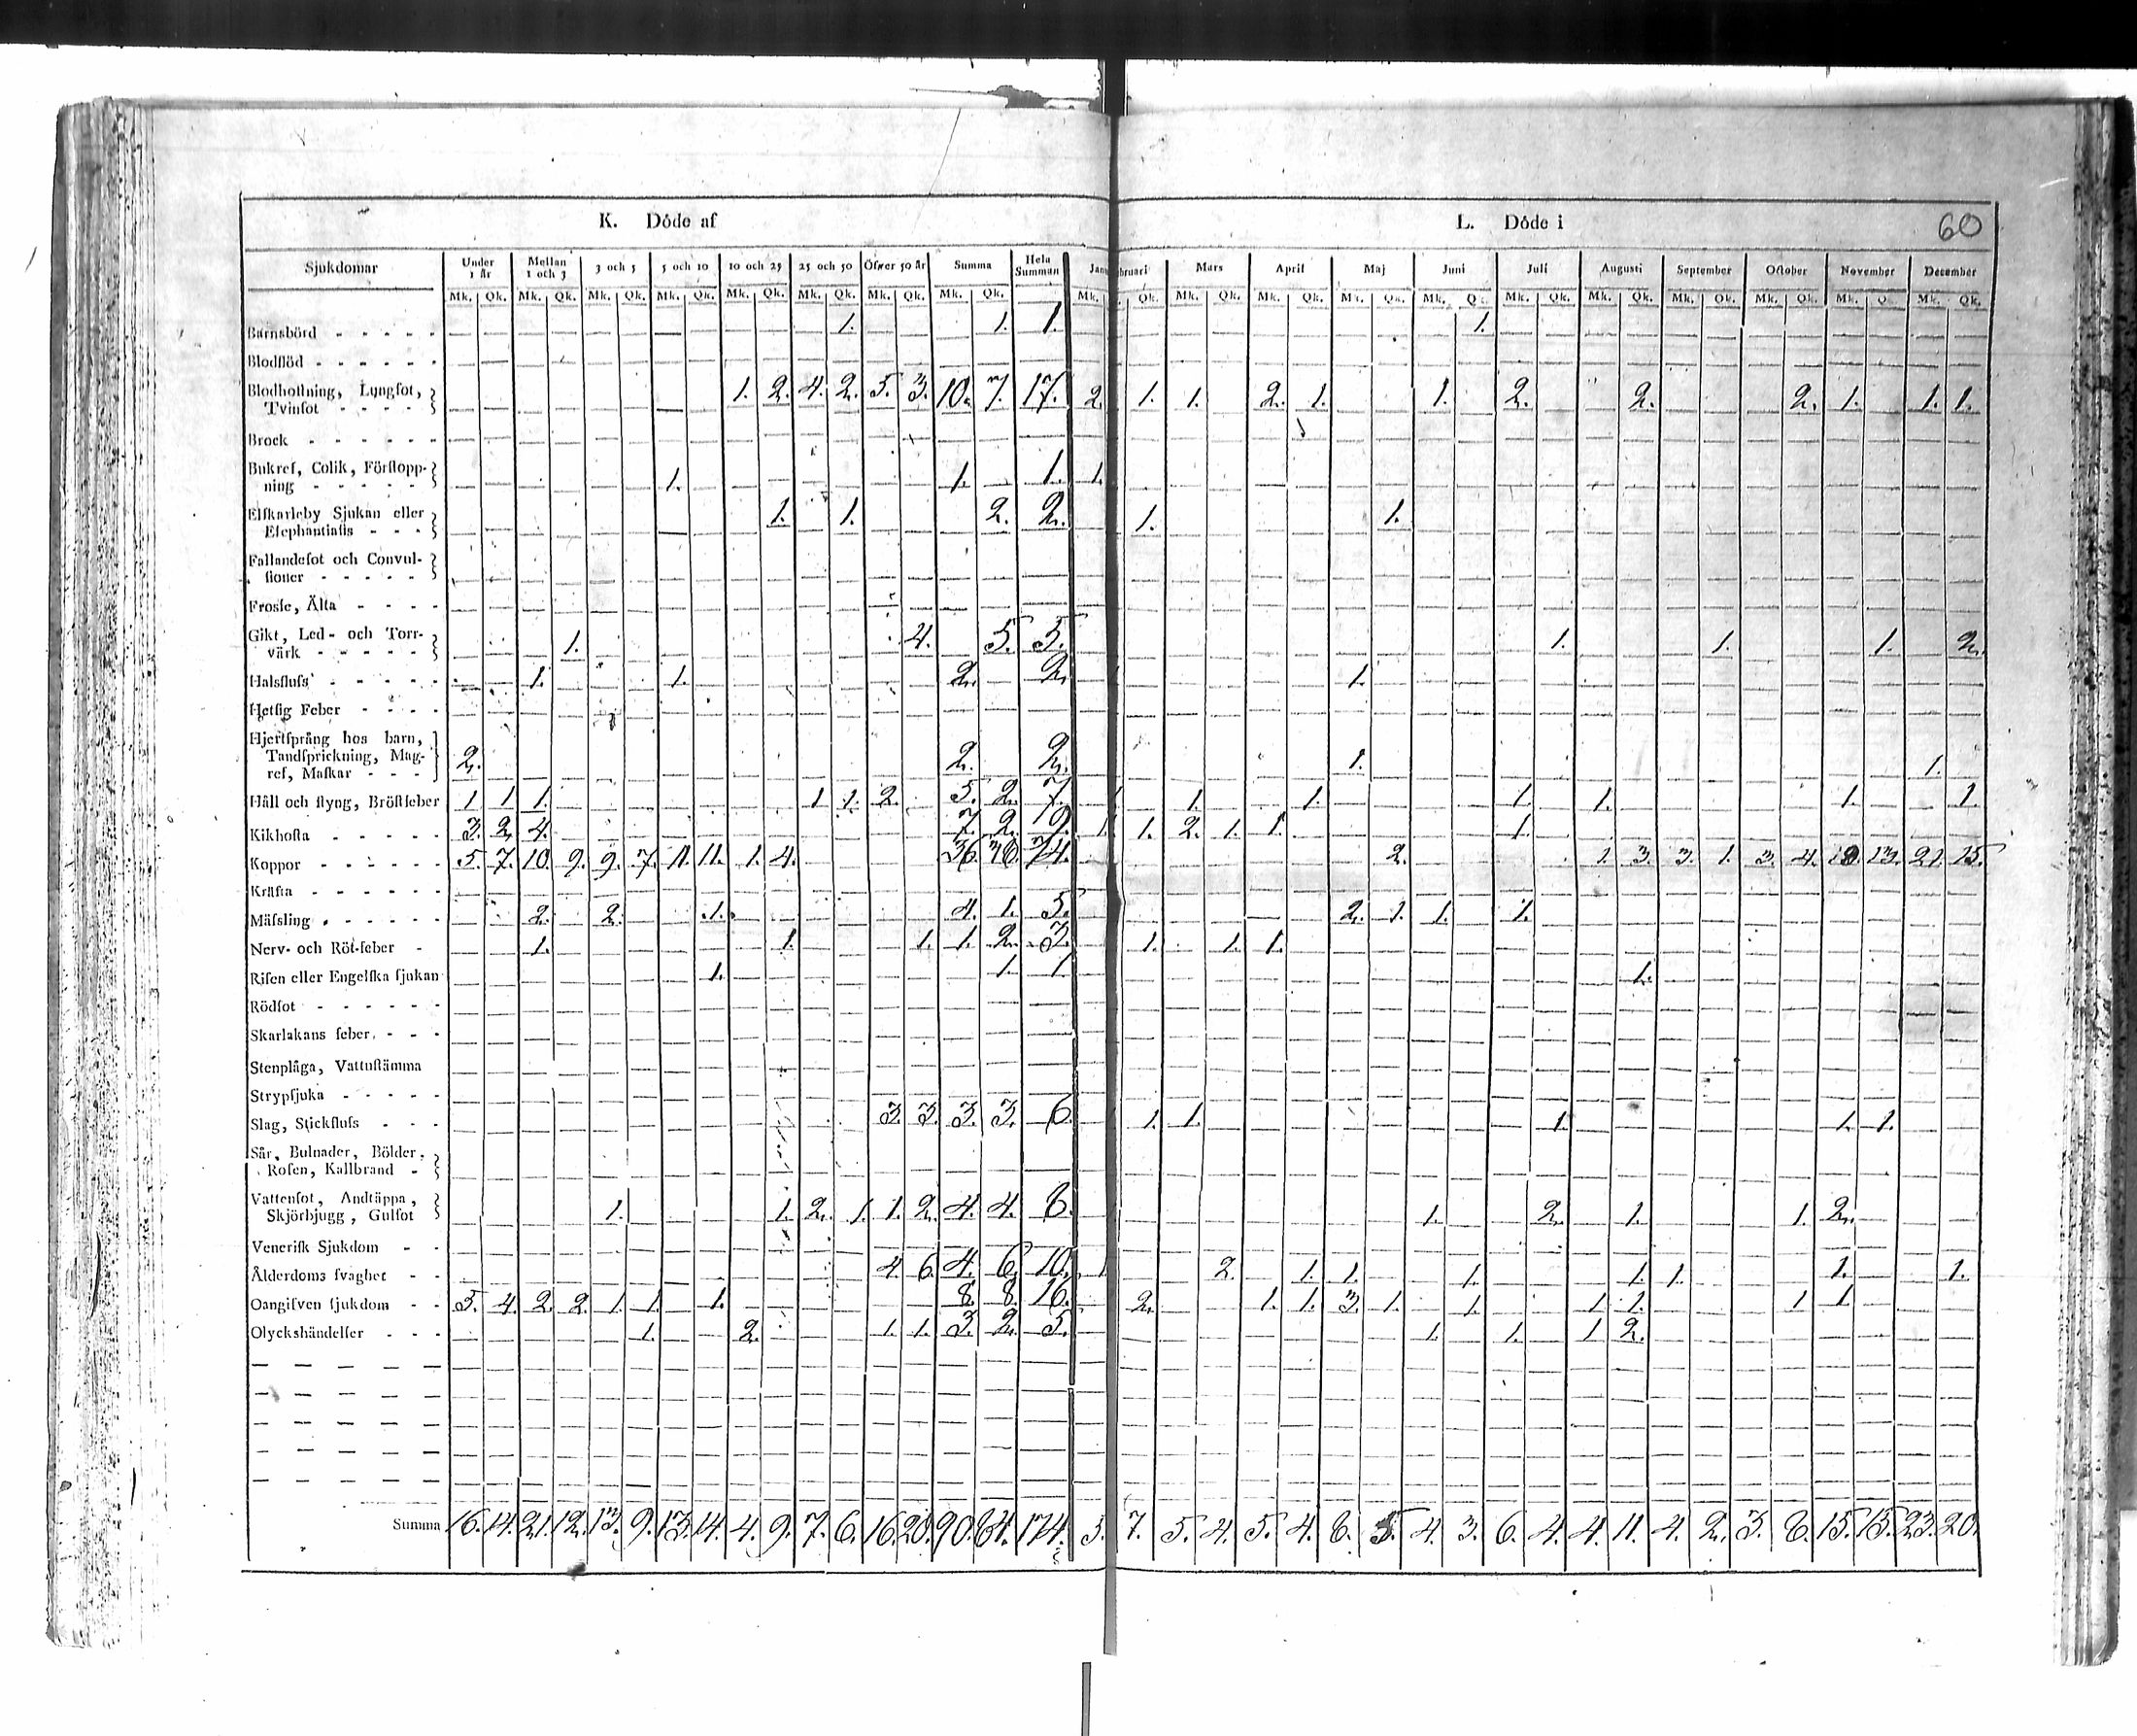 K. Döde af
L. Döde i
60
Sjukdomar Under 1 år Mellan 1 och 3 3 och 5 5 och 10 10 och 25 25 och 50 Öfwer 50 år Summa Hela Summan Janu bruari Mars April Maj Juni Juli Augusti September October November December
Mk. Qk. Mk. Qk. Mk. Qk. Mk. Qk. Mk. Qk. Mk. Qk. Mk. Qk. Mk. Qk. Mk. Qk. Mk. Qk. Mk. Qk. Mk. Qk. Mk. Qk. Mk. Qk. Mk. Qk. Mk. Qk. Mk. Qk. Mk. Q Mk. Qk.
Barnsbörd - - - - - 1. 1. 1. 1.
Blodflöd - - - - - -
Blodhostning, Lungsot,
Tvinsot - - - - 1. 2. 4. 2. 5. 3. 10. 7. 17. 2. 1. 1. 2. 1. 1. 2. 2. 2. 1. 1. 1.
Brock - - - - - -
Bukref, Colik, Förstopp-
ning - - - - - 1. 1. 1. 1.
Elfkarleby Sjukan eller
Elephantiasis - - - 1. 1. 2. 2. 1. 1.
Fallandesot och Convul-
sioner - - - - -
Frosse, Älta - - - -
Gikt, Led- och Torr-
värk - - - - - 1. 4. 5. 5. 1. 1. 1. 2.
Halsfluss - - - - - 1. 1. 2. 2. 1.
Hetsig Feber - - - -
Hjertsprång hos barn,
Tandsprickning, Mag-
ref, Maskar - - - 2. 2. 2. 1. 1.
Håll och styng, Bröstfeber 1 1 1. 1 1. 2. 5. 2. 7. 1. 1. 1. 1. 1. 1.
Kikhosta - - - - - 3. 2. 4. 7. 2. 9. 1. 1. 2. 1. 1. 1.
Koppor - - - - - - 5. 7. 10. 9. 9. 7. 11. 11. 1. 4. 36. 38. 74. 2. 1. 3. 3. 1. 3. 4. 13. 21. 15.
Kräfta - - - - - -
Mässling - - - - - 2. 2. 1. 4. 1. 5. 2. 1. 1. 1.
Nerv- och Röt-feber - 1. 1. 1. 1. 2. 3. 1. 1. 1.
Risen eller Engelska sjukan 1. 1. 1 1.
Rödsot - - - - - -
Skarlakans feber - - -
Stenplåga, Vattustämma
Strypsjuka - - - - -
Slag, Stickfluss - - - 3. 3. 3. 3. 6. 1. 1. 1. 1. 1.
Sår, Bulnader, Bölder,
Rosen, Kallbrand -
Vattensot, Andtäppa,
Skjörbjugg, Gulsot 1. 1. 2. 1. 1. 2. 4. 4. 8. 1. 2. 1. 1. 2.
Venerisk Sjukdom - -
Ålderdoms svaghet - - 4 6. 4. 6. 10. 1. 2. 1. 1. 1. 1. 1. 1. 1.
Oangifven sjukdom - - 5. 4. 2. 2. 1. 1. 1. 8. 8. 16. 2. 1. 1. 3. 1. 1. 1 1. 1 1.
Olyckshändelser - - - 1. 2. 1. 1. 3. 2. 5. 1. 1. 1 2.
Summa 16. 14. 21. 12. 13. 9. 13. 14. 4. 9. 7. 6. 16. 20. 90. 84. 174. 5. 7. 5. 4. 5. 4. 8. 5. 4. 3. 6. 4. 4. 11. 4. 2. 3. 8. 15. 15. 23. 20.